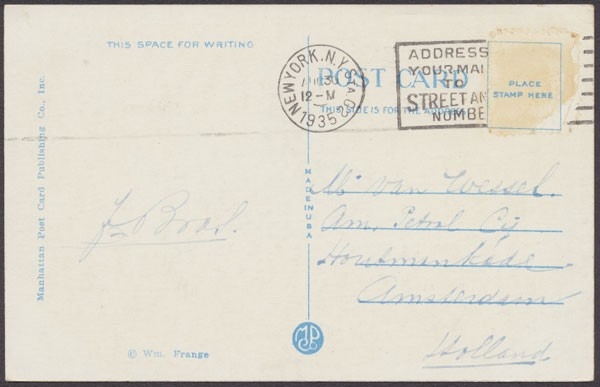 THIS SPACE FOR WRITING
POST CARD
THIS SIDE IS FOR THE ADDRESS
NEW YORK, N.Y. STA.
30
12-M
1935
ADDRESS
YOUR MAI
TO
STREET AN
NUMBE
PLACE
STAMP HERE
Manhattan Post Card Publishing Co., Inc.
MADE IN USA
Mr van Wessel.
Am. Petrol Cy
Houtmankade
Amsterdam
Holland
© Wm. Frange